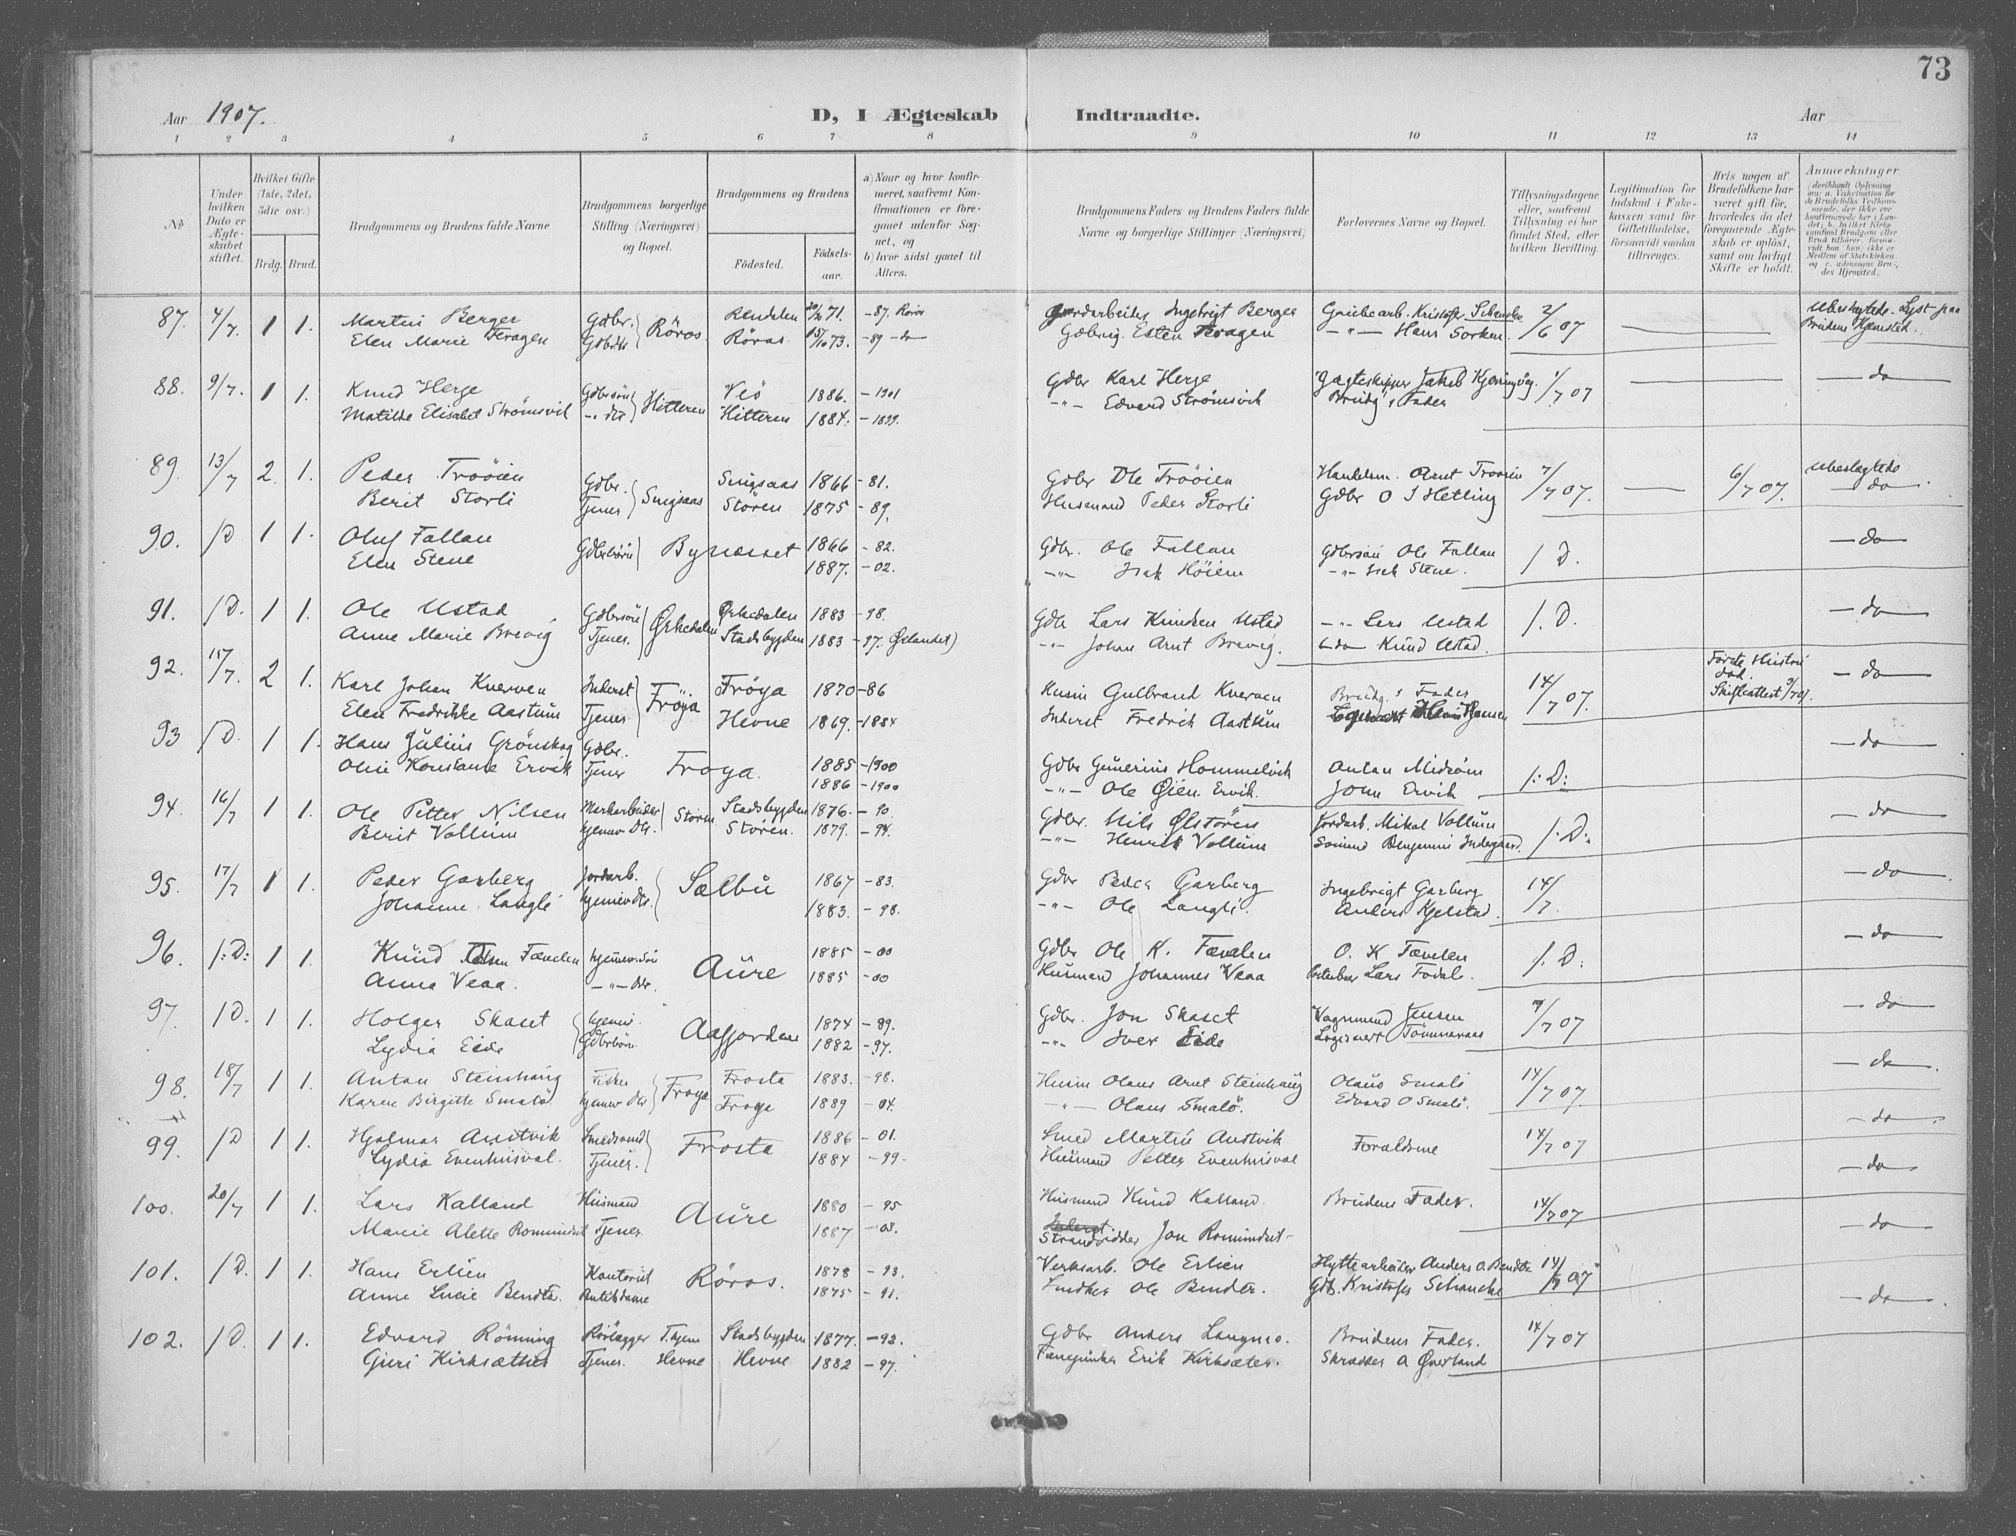 73
Aar 1907. D, I Ægteskab Indtraadte. Aar
1 2 3 4 5 6 7 8 9 10 11 12 13 14
No
Under hvilken Dato er Ægteskabet stiftet.
Hvilket Gifte (1ste, 2det, 3die osv.)
Brdg. Brud.
Brudgommens og Brudens fulde Navne
Brudgommens borgerlige Stilling (Næringsvei) og Bopæl.
Brudgommens og Brudens
Fødested. Fødselsaar.
a) Naar og hvor konfirmeret, saafremt Konfirmationen er foregaaet udenfor Sognet, og
b) hvor sidst gaaet til Alters.
Brudgommens Faders og Brudens Faders fulde Navne og borgerlige Stillinger (Næringsvei)
Forlovernes Navne og Bopæl.
Tillysningsdagene eller, saafremt Tillysning ei har fundet Sted, efter hvilken Bevilling.
Legitimation for Indskud i Enkekassen samt for Giftetilladelse, forsaavidt saadan tiltrænges.
Hvis nogen af Brudefolkene har været gift før, hvorledes da det foregaaende Ægteskab er opløst, samt om lovligt Skifte er holdt.
Anmærkninger
87. 4/7. 1 1. Martin Berger Gdbr. Röros. Rendalen 71. -87. Röros Ingebrigt Berger Kristofer Schancke 2/6 07 Ubeslægtede. Lyst paa
Elen Marie Feragen Röros 73. -89 -do Gdbrug. Esten Feragen -"- Hans Sorken. Brudens Hjemsted.
88. 9/7. 1 1. Knud Herge Gdbrsön Hitteren Veö 1886. -1901 Gdbr Karl Herge Jagteskipper Jakob 1/7 07 -do-
Matilde Elisabet Strömsvik -"- Dtr Hitteren 1884. -1899. -"- Edvard Strömsvik Brudg's Fader
89. 13/7 2. 1. Peder Trööien Gdbr. Singsaas Singsaas 1866 -81. Gdbr Ole Trööien Handelsm. Arnt Tröoien 7/7 07. 6/7 07. Ubeslægtede
Berit Storli Tjener Stören 1875 -89. Husmand Peder Storli Gdbr O J Hetling -do-
90. /D 1 1. Oluf Fallan Gdbrbörn Bynesset 1866 -82. Gdbr. Ole Fallan Gdbrsön Ole Fallan /D. -do-
Elen Stene 1887. -02. -"- Isak Höiem -"- Isak Stene.
91. /D. 1 1. Ole Ustad Gdbrsön Ørkedalen Ørkedalen 1883 -98. Gdb Lars Knudsen Ustad -"- Lars Ustad /.D. -do-
Anne Marie Brevig Tjener. Stadsbygden 1883 -97. Ørlandet) -"- Johan Arnt Brevig. -do- Knud Ustad.
92. 15/7. 2 1. Karl Johan Kverven Inderst Fröja Fröya 1870 -86 Husm Gulbrand Kverven Brudg.s Fader 14/7 07. Förste Hustru död. -do-
Elen Fredrikke Aastum Tjener Hevne 1869. -1884 Inderst Fredrik Aastum Skifteattest 9/7 07.
93 /D. 1 1. Hans Julius Grönskag Gdbr. Fröya. 1885 -1900 Gdbr Gunerius Hommelvik Anton Midsöm /:D: -do-
Oline Konstanse Ervik Tjener 1886 -1900 -"- Ole Øien Ervik. John Ervik
94. 16/7 1 1. Ole Petter Nilsen Markarbeider Stören Stadsbygden 1876. -90. Gdbr. Nils Ølstören Jordarb. Mikal Vollum /:D:. -do-
Berit Vollum hjemv Dtr. Stören. 1879. -94. -"- Henrik Vollum Benjamin Indergaard.
95. 17/7 1 1. Peder Garberg Jordarb. Sælbu 1867 -83. Gdbr Peder Garberg Ingebrigt Garberg 14/7. -do-
Johanne Langli hjemv Dtr. 1883. -98. -"- Ole Langli. Anders Kjelstad.
96. /:D: 1 1. Knud Olsen Fævelen hjemv. Sön Aure 1885 -00 Gdbr Ole K. Fævelen O. K Fævelen /.D: -do-
Anna Veaa. -"- Dtr. 1885 -00 Husmand Johannes Veaa Lars Todal.
97. /D. 1 1. Holger Skaset hjemv. Aafjorden 1874 -89. Gdbr. Jon Skaset Vognmand Jensen 7/7 07 -do
Lydia Eide Gdbrbörn. 1882 -97. -"- Iver Eide Logisvert Tömmeraas
98. 18/7 1 1. Anton Steinhaug Fisker Froya Frosta 1883. -98. Husm Olaus Arnt Steinhaug Olaus Smalö 14/7 07 -do
Karen Birgitte Smalö. hjemv Dtr Froya 1889 -04. -"- Olaus Smalö. Edvard O Smalö.
99. /D 1 1. Hjalmar Austvik Smedsvend Frosta 1886 -01. Smed Martin Austvik Forældrene 14/7 07 -do-
Lydia Evenhusval. Tjener. 1884 -99- Husmand Petter Evenhusval
100. 20/7 1 1. Lars Kalland Husmand Aure 1880 -95 Husmand Knud Kalland. Brudens Fader. 14/7 07 -do
Marie Alette Tjener. 1887 -03. Strandsidder Jon
101. /D. 1 1. Hans Erlien Kontorist Röros. 1878 -93. Verksarb. Ole Erlien Hyttearbeider Anders O. Bendtz 14/7 07 -do
Anne Lucie Bendtz. Butikdame 1875 -91. Snidker Ole Bendtz. Gdb. Kristofer Schancke
102. /D. 1 1. Edvard Rönning Rörlægger T.hjem Stadsbygden 1877. -92. Gdbr Anders Brudens Fader. 14/7 07 -do-
Guri Kirksæther Tjener. Hevne Hevne 1882 -97. Erik Kirksæter. Skrædder A Øverland